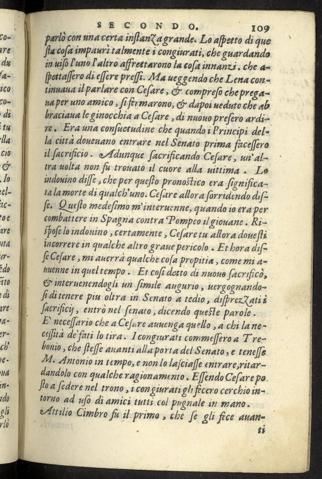 SECONDO. 109
parlò con una certa instanza grande. Lo aspetto di que
sta cosa impaurì talmente i congiurati, che guardando
in viso l'uno l'altro affrettarono la cosa innanzi, che a-
spettassero di essere presi. Ma veggendo che Lena con-
tinuaua il parlare con Cesare, & compreso che prega-
ua per uno amico, si fermarono, & dapoi veduto che ab
bracciaua le ginocchia a Cesare, di nuouo presero ardi-
re. Era una consuetudine che quando i Principi del-
la città doueuano entrare nel Senato prima facessero
il sacrificio. Adunque sacrificando Cesare, un'al-
tra volta non fu trouato il cuore alla uittima. Lo
indouino disse, che per questo pronostico era significa-
ta la morte di qualch'uno. Cesare allora sorridendo dis-
se. Questo medesimo m'interuenne, quando io era per
combattere in Spagna contra Pompeo il giouane. Ri-
spose lo indouino, certamente, Cesare tu allora douesti
incorrere in qualche altro graue pericolo. Et hora dis-
se Cesare, mi auerrà qualche cosa propitia, come mi a-
uenne in quel tempo. Et cosi dotto di nuouo sacrificò,
& interuenendogli un simile augurio, uergognando-
si di tenere piu oltra in Senato a tedio, disprezzati i
sacrificij, entrò nel senato, dicendo queste parole.
E' necessario che a Cesare auuenga quello, a chi la ne-
cessità de' fati lo tira. I congiurati commessero a Tre-
bonio, che stesse auanti alla porta del Senato, e tenesse
M. Antonio in tempo, e non lo lasciasse entrare, ritar-
dandolo con qualche ragionamento. Essendo Cesare po
sto a sedere nel trono, i congiurati gli fecero cerchio in-
torno ad uso di amici tutti col pugnale in mano.
Attilio Cimbro fu il primo, che se gli fece auan-
ti